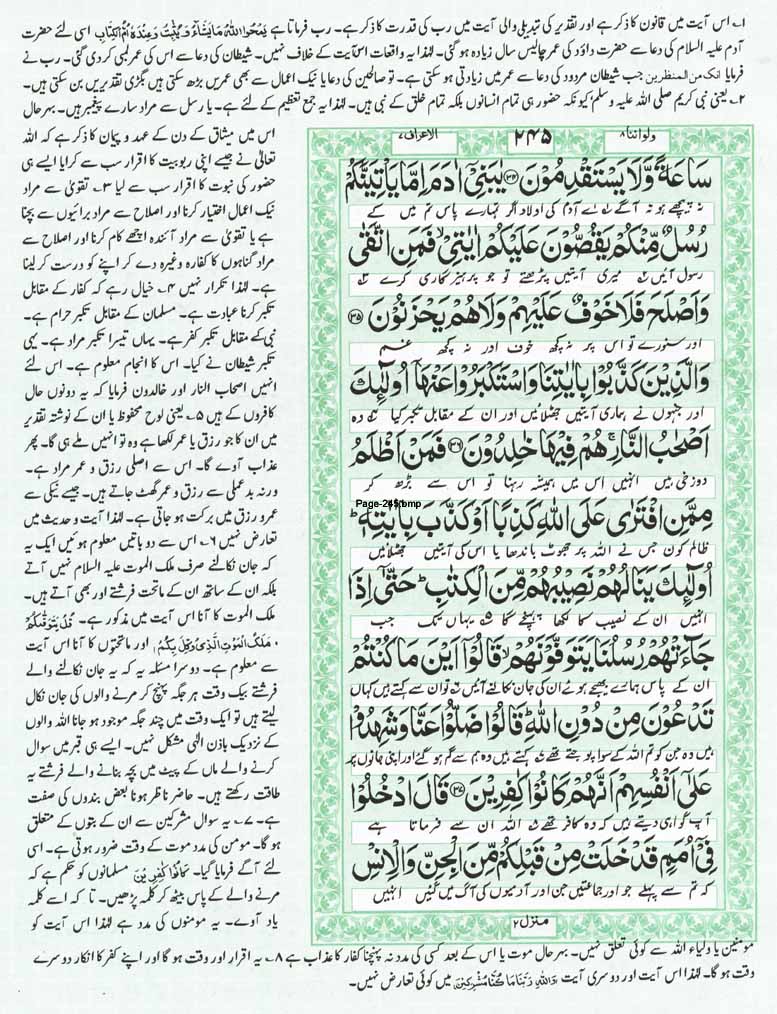 ۱۔ اس آیت میں قانون کا ذکر ہے اور تقدیر کی تبدیلی والی آیت میں رب کی قدرت کا ذکر ہے۔ رب فرماتا ہے یَمْحُوا اللہُ مَا یَشَآءُ وَیُثْبِتُ وَعِنْدَہٗ اُمُّ الْکِتَابِ اسی لئے حضرت
آدم علیہ السلام کی دعا سے حضرت داؤد کی عمر چالیس سال زیادہ ہو گئی۔ لہٰذا یہ واقعات اس آیت کے خلاف نہیں۔ شیطان کی دعا سے اس کی عمر لمبی کر دی گئی۔ رب نے
فرمایا انک من المنظرین جب شیطان مردود کی دعا سے عمر میں زیادتی ہو سکتی ہے۔ تو صالحین کی دعا یا نیک اعمال سے بھی عمریں بڑھ سکتی ہیں بگڑی تقدیریں بن سکتی ہیں۔
۲۔ یعنی نبی کریم صلی اللہ علیہ وسلم کیونکہ حضور ہی تمام انسانوں بلکہ تمام خلق کے نبی ہیں۔ لہٰذا یہ جمع تعظیم کے لئے ہے۔ یا رسل سے مراد سارے پیغمبر ہیں۔ بہرحال
ولواننا۸ ۲۴۵ الاعراف۷
سَاعَةً وَّلَا یَسْتَقْدِمُوْنَ ﴿۳۴﴾ یٰبَنِیْۤ اٰدَمَ اِمَّا یَاْتِیَنَّكُمْ
نہ پیچھے ہو نہ آگے اے آدم کی اولاد اگر تمہارے پاس تم میں کے
رُسُلٌ مِّنْكُمْ یَقُصُّوْنَ عَلَیْكُمْ اٰیٰتِیْ ۙ فَمَنِ اتَّقٰی
رسول آئیں میری آیتیں پڑھتے تو جو پرہیزگاری کرے
وَاَصْلَحَ فَلَا خَوْفٌ عَلَیْهِمْ وَلَا هُمْ یَحْزَنُوْنَ ﴿۳۵﴾
اور سنورے تو اس پر نہ کچھ خوف اور نہ کچھ غم
وَالَّذِیْنَ كَذَّبُوْا بِاٰیٰتِنَا وَاسْتَكْبَرُوْا عَنْهَاۤ اُولٰٓئِكَ
اور جنہوں نے ہماری آیتیں جھٹلائیں اور ان کے مقابل تکبر کیا وہ
اَصْحٰبُ النَّارِ ۚ هُمْ فِیْهَا خٰلِدُوْنَ ﴿۳۶﴾ فَمَنْ اَظْلَمُ
دوزخی ہیں انہیں اس میں ہمیشہ رہنا تو اس سے بڑھ کر
Page-245.bmp
مِمَّنِ افْتَرٰی عَلَی اللّٰهِ كَذِبًا اَوْ كَذَّبَ بِاٰیٰتِهٖ ؕ
ظالم کون جس نے اللہ پر جھوٹ باندھا یا اس کی آیتیں جھٹلائیں
اُولٰٓئِكَ یَنَالُهُمْ نَصِیْبُهُمْ مِّنَ الْكِتٰبِ ؕ حَتّٰۤی اِذَا
انہیں ان کے نصیب کا لکھا پہنچے گا یہاں تک جب
جَآءَتْهُمْ رُسُلُنَا یَتَوَفَّوْنَهُمْ ۙ قَالُوْۤا اَیْنَ مَا كُنْتُمْ
ان کے پاس ہمارے بھیجے ہوئے ان کی جان نکالنے آئیں تو ان سے کہتے ہیں کہاں
تَدْعُوْنَ مِنْ دُوْنِ اللّٰهِ ؕ قَالُوْا ضَلُّوْا عَنَّا وَشَهِدُوْا
ہیں وہ جن کو تم اللہ کے سوا پوجتے تھے کہتے ہیں وہ ہم سے گم ہو گئے اور اپنی جانوں پر
عَلٰۤی اَنْفُسِهِمْ اَنَّهُمْ كَانُوْا كٰفِرِیْنَ ﴿۳۷﴾ قَالَ ادْخُلُوْا
آپ گواہی دیتے ہیں کہ وہ کافر تھے اللہ ان سے فرماتا ہے
فِیْۤ اُمَمٍ قَدْ خَلَتْ مِنْ قَبْلِكُمْ مِّنَ الْجِنِّ وَالْاِنْسِ
کہ تم سے پہلے جو اور جماعتیں جن اور آدمیوں کی آگ میں گئیں انہیں
منزل۲
اس میں میثاق کے دن کے عہد و پیمان کا ذکر ہے کہ اللہ
تعالیٰ نے جیسے اپنی ربوبیت کا اقرار سب سے کرایا ایسے ہی
حضور کی نبوت کا اقرار سب سے لیا ۳۔ تقویٰ سے مراد
نیک اعمال اختیار کرنا اور اصلاح سے مراد برائیوں سے بچنا
ہے یا تقویٰ سے مراد آئندہ اچھے کام کرنا اور اصلاح سے
مراد گناہوں کا کفارہ وغیرہ دے کر اپنے کو درست کر لینا
ہے۔ لہٰذا تکرار نہیں ۴۔ خیال رہے کہ کفار کے مقابل
تکبر کرنا عبادت ہے۔ مسلمان کے مقابل تکبر حرام ہے۔
نبی کے مقابل تکبر کفر ہے۔ یہاں تیسرا تکبر مراد ہے۔ یہی
تکبر شیطان نے کیا۔ اس کا انجام معلوم ہے۔ اس لئے
انہیں اصحاب النار اور خالدون فرمایا کہ یہ دونوں حال
کافروں کے ہیں ۵۔ یعنی لوح محفوظ یا ان کے نوشتہ تقدیر
میں ان کا جو رزق یا عمر لکھا ہے وہ تو انہیں ملے ہی گا۔ پھر
عذاب آوے گا۔ اس سے اصلی رزق و عمر مراد ہے۔
ورنہ بد عملی سے رزق و عمر گھٹ جاتے ہیں۔ جیسے نیکی سے
عمر و رزق میں برکت ہو جاتی ہے۔ لہٰذا آیت و حدیث میں
تعارض نہیں ۶۔ اس سے دو باتیں معلوم ہوئیں ایک یہ
کہ جان نکالنے صرف ملک الموت علیہ السلام نہیں آتے
بلکہ ان کے ساتھ ان کے ماتحت فرشتے اور بھی آتے ہیں۔
ملک الموت کا آنا اس آیت میں مذکور ہے۔ قُلْ یَتَوَفّٰىكُمْ
مَلَكُ الْمَوْتِ الَّذِیْ وُكِّلَ بِكُمْ اور ماتحتوں کا آنا اس آیت
سے معلوم ہے۔ دوسرا مسئلہ یہ کہ یہ جان نکالنے والے
فرشتے بیک وقت ہر جگہ پہنچ کر مرنے والوں کی جان نکال
لیتے ہیں تو ایک وقت میں چند جگہ موجود ہو جانا اللہ والوں
کے نزدیک باذن الٰہی مشکل نہیں۔ ایسے ہی قبر میں سوال
کرنے والے ماں کے پیٹ میں بچہ بنانے والے فرشتے یہ
طاقت رکھتے ہیں۔ حاضر ناظر ہونا بعض بندوں کی صفت
ہے ۷۔ یہ سوال مشرکین سے ان کے بتوں کے متعلق
ہو گا۔ مومن کی مدد موت کے وقت ضرور ہوتی ہے۔ اسی
لئے آگے فرمایا گیا۔ كَانُوْا كٰفِرِیْنَ مسلمانوں کو حکم ہے کہ
مرنے والے کے پاس بیٹھ کر کلمہ پڑھیں۔ تا کہ اسے کلمہ
یاد آوے۔ یہ مومنوں کی مدد ہے لہٰذا اس آیت کو
مومنین یا ولیاء اللہ سے کوئی تعلق نہیں۔ بہرحال موت یا اس کے بعد کسی کی مدد نہ پہنچنا کفار کا عذاب ہے ۸۔ یہ اقرار اور وقت ہو گا اور اپنے کفر کا انکار دوسرے
وقت ہو گا۔ لہٰذا اس آیت اور دوسری آیت وَاللّٰهِ رَبِّنَا مَا كُنَّا مُشْرِكِیْنَ میں کوئی تعارض نہیں۔